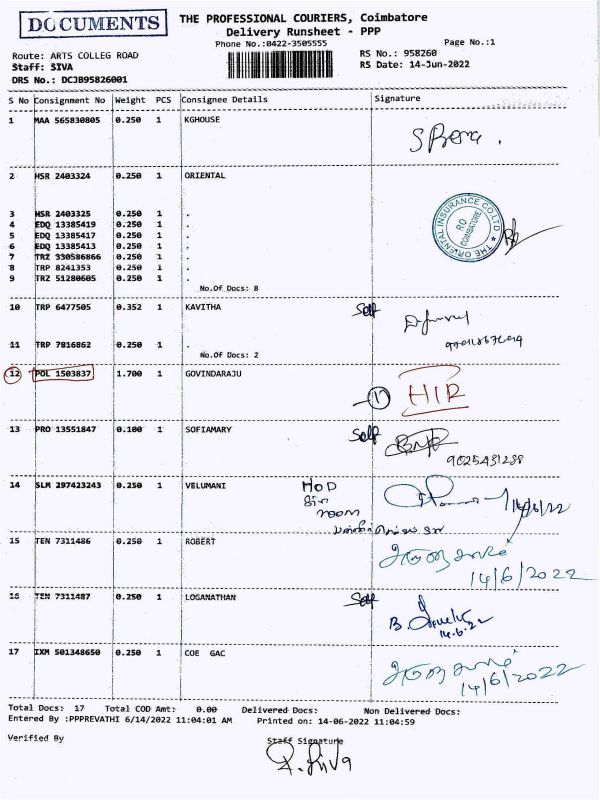 DOCUMENTS
THE PROFESSIONAL COURIERS, Coimbatore
Delivery Runsheet - PPP
Phone No.:0422-3505555
Page No.:1
Route: ARTS COLLEG ROAD
Staff: SIVA
DRS No.: DCJB95826001
RS No.: 958260
RS Date: 14-Jun-2022
S No Consignment No Weight PCS Consignee Details Signature
1 MAA 565830805 0.250 1 KGHOUSE
2 HSR 2403324 0.250 1 ORIENTAL
THE ORIENTAL INSURANCE CO.LTD
RO
COIMBATORE
3 HSR 2403325 0.250 1 .
4 EDQ 13385419 0.250 1 .
5 EDQ 13385417 0.250 1 .
6 EDQ 13385413 0.250 1 .
7 TRZ 330586866 0.250 1 .
8 TRP 8241353 0.250 1 .
9 TRZ 51280605 0.250 1 .
No.Of Docs: 8
10 TRP 6477505 0.352 1 KAVITHA Self
11 TRP 7816862 0.250 1 .
No.Of Docs: 2
12 POL 1503837 1.700 1 GOVINDARAJU
HIR
13 PRO 13551847 0.100 1 SOFIAMARY Self
9025431288
14 SLM 297423243 0.250 1 VELUMANI HOD
room
14/6/22
15 TEN 7311486 0.250 1 ROBERT
14/6/2022
16 TEN 7311487 0.250 1 LOGANATHAN Self
14.6.22
17 IXM 501348650 0.250 1 COE GAC
14/6/2022
Total Docs: 17 Total COD Amt: 0.00 Delivered Docs: Non Delivered Docs:
Entered By :PPPREVATHI 6/14/2022 11:04:01 AM Printed on: 14-06-2022 11:04:59
Verified By Staff Signature